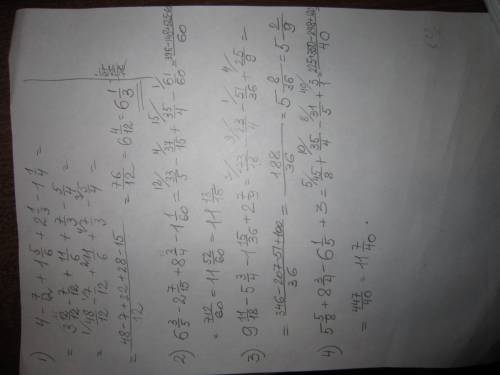 1) 4 - 7/12 + 1 5/6 + 2 1/3 - 1 1/4 =
= 3 12/12 - 7/12 + 11/6 + 7/3 - 5/4 =
= 48/12 - 7/12 + 11/6 + 7/3 - 5/4 =
= 48-7+22+28-15/12 = 76/12 = 6 4/12 = 6 1/3
2) 6 3/5 - 2 7/15 + 8 3/4 - 1 1/60 = 33/5 - 37/15 + 35/4 - 61/60 =
= 712/60 = 11 52/60 = 11 13/15
3) 9 11/18 - 5 3/4 - 1 15/36 + 2 7/9 = 173/18 - 23/4 - 51/36 + 25/9 =
= 346-207-51+100/36 = 188/36 = 5 8/36 = 5 2/9
4) 5 5/8 + 8 3/4 - 6 1/5 + 3 = 45/8 + 35/4 - 31/5 + 3/1 = 225+350-248+120/40
= 447/40 = 11 7/40.